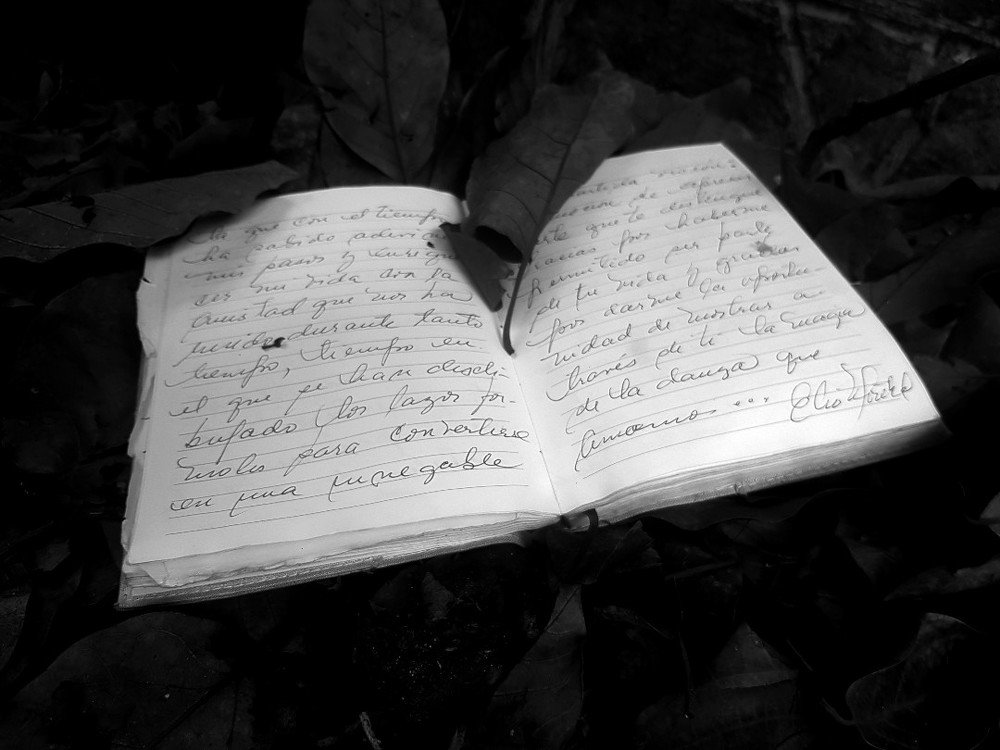 lo que con el tiempo
ha sabido adivinar
mis pasos y enrique
cer mi vida con la
amistad que nos ha
unido durante tanto
tiempo, tiempo en
el que se han desdi-
bujado los lazos for-
males para convertirse
en una innegable
de
este que te
gracias por haberme
permitido ser parte
de tu vida y gracias
por darme la oportu-
nidad de mostrar a
través de ti la magia
de la danza que
amamos ...